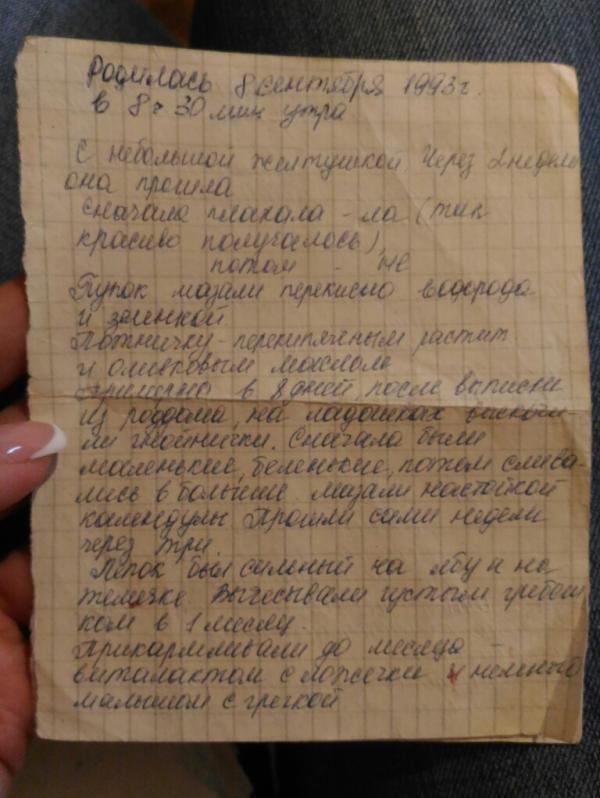 Родилась 8 сентября 1993 г.
в 8 ч 30 мин утра
С небольшой желтушкой. Через 2 недели
она прошла
Сначала плакала - ла (так
красиво получалось),
потом - не
Пупок мазали перекисью водорода
и зеленкой
Потничку - перекипяченым растит
и оливковым маслом
Примерно в 8 дней, после выписки
из роддома, на ладошках выскочи-
ли гнойнички. Сначала были
маленькие, беленькие, потом слива-
лись в большие. Мазали настойкой
календулы Прошли сами недели
через три.
был сильный на лбу и на
темечке. Вычесывали густым гребеш
ком в 1 месяц.
Прикармливали до месяца -
виталактом с ложечки и немного
малышом с гречкой